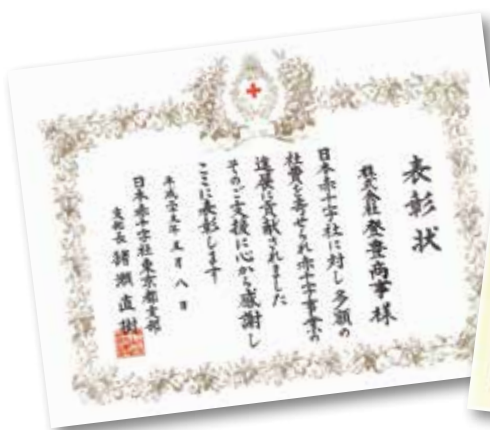 表彰状
株式会社 登豊商事様
日本赤十字社に対し多額の
社費を寄せられ赤十字事業の
進展に貢献されました
そのご支援に心から感謝し
ここに表彰します
平成二十五年五月八日
日本赤十字社東京都支部
支部長 猪瀬直樹